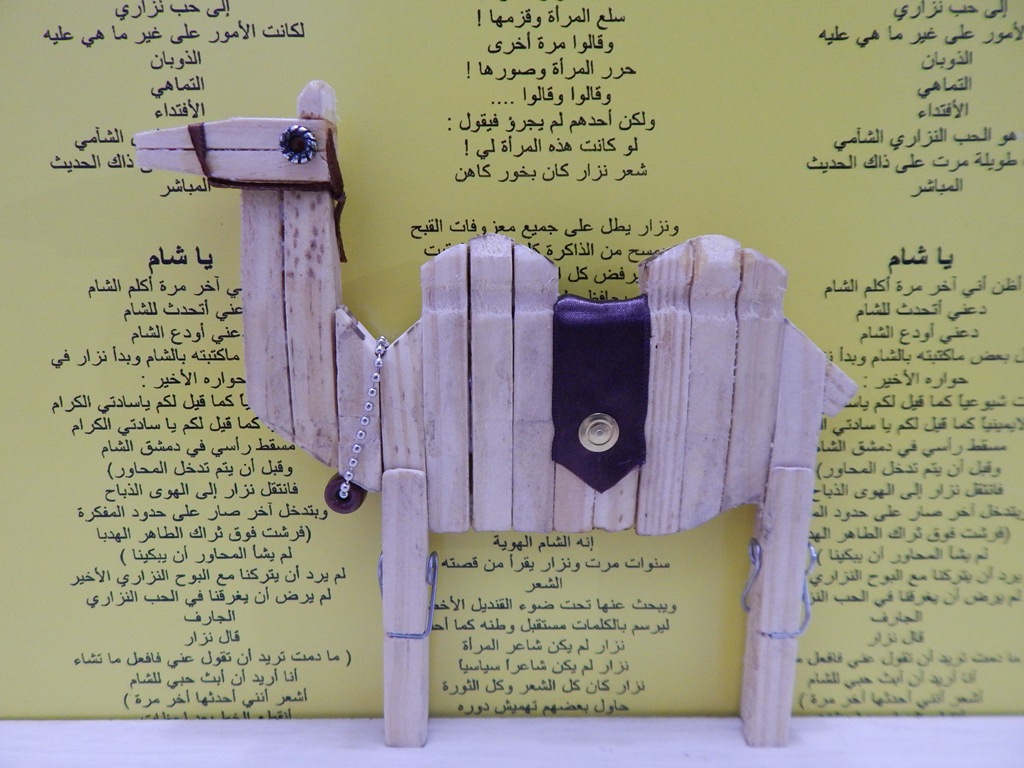 إلى حب نزاري
الأمور على غير ما هي عليه
الذوبان
التماهي
الأفتداء
هو الحب النزاري الشآمي
طويلة مرت على ذاك الحديث
المباشر
يا شام
أظن أني آخر مرة أكلم الشام
دعني أتحدث للشام
دعني أودع الشام
بعض ماكتبته بالشام وبدأ
حواره الأخير :
شيوعياً كما قيل لكم يا
لايمينياً كما قيل لكم يا سادتي
مسقط رأسي في دمشق
وقبل أن يتم تدخل المحاور)
فانتقل نزار إلى الهوى الذباح
يتدخل آخر صار على حدود
(فرشت فوق ثراك الطاهر
لم يشأ المحاور أن يبكينا )
يرد أن يتركنا مع البوح النزاري
لم يرض أن يغرقنا في الحب
الجارف
قال نزار
دمت تريد أن تقول عني فافعل
أنا أريد أن أبث حبي للشام
أشعر أنني أحدثها آخر مرة )
سلع المرأة وقزمها !
وقالوا مرة أخرى
حرر المرأة وصورها !
وقالوا وقالوا ....
ولكن أحدهم لم يجرؤ فيقول :
لو كانت هذه المرأة لي !
شعر نزار كان بخور كاهن
ونزار يطل على جميع معزوفات القبح
من الذاكرة
يرفض كل
إنه الشام الهوية
سنوات مرت ونزار يقرأ من قصته
الشعر
ويبحث عنها تحت ضوء القنديل
ليرسم بالكلمات مستقبل وطنه كما
نزار لم يكن شاعر المرأة
نزار لم يكن شاعراً سياسياً
نزار كان كل الشعر وكل الثورة
حاول بعضهم تهميش دوره
إلى حب نزاري
لكانت الأمور على غير ما هي عليه
الذوبان
التماهي
الأفتداء
ذاك الحديث
المباشر
يا شام
آخر مرة أكلم الشام
أتحدث للشام
أودع الشام
ماكتبته بالشام وبدأ نزار في
حواره الأخير :
كما قيل لكم ياسادتي الكرام
كما قيل لكم يا سادتي الكرام
مسقط رأسي في دمشق الشام
وقبل أن يتم تدخل المحاور)
فانتقل نزار إلى الهوى الذباح
ويتدخل آخر صار على حدود المفكرة
(فرشت فوق ثراك الطاهر الهدبا
لم يشأ المحاور أن يبكينا )
لم يرد أن يتركنا مع البوح النزاري الأخير
لم يرض أن يغرقنا في الحب النزاري
الجارف
قال نزار
( ما دمت تريد أن تقول عني فافعل ما تشاء
أنا أريد أن أبث حبي للشام
أشعر أنني أحدثها آخر مرة )